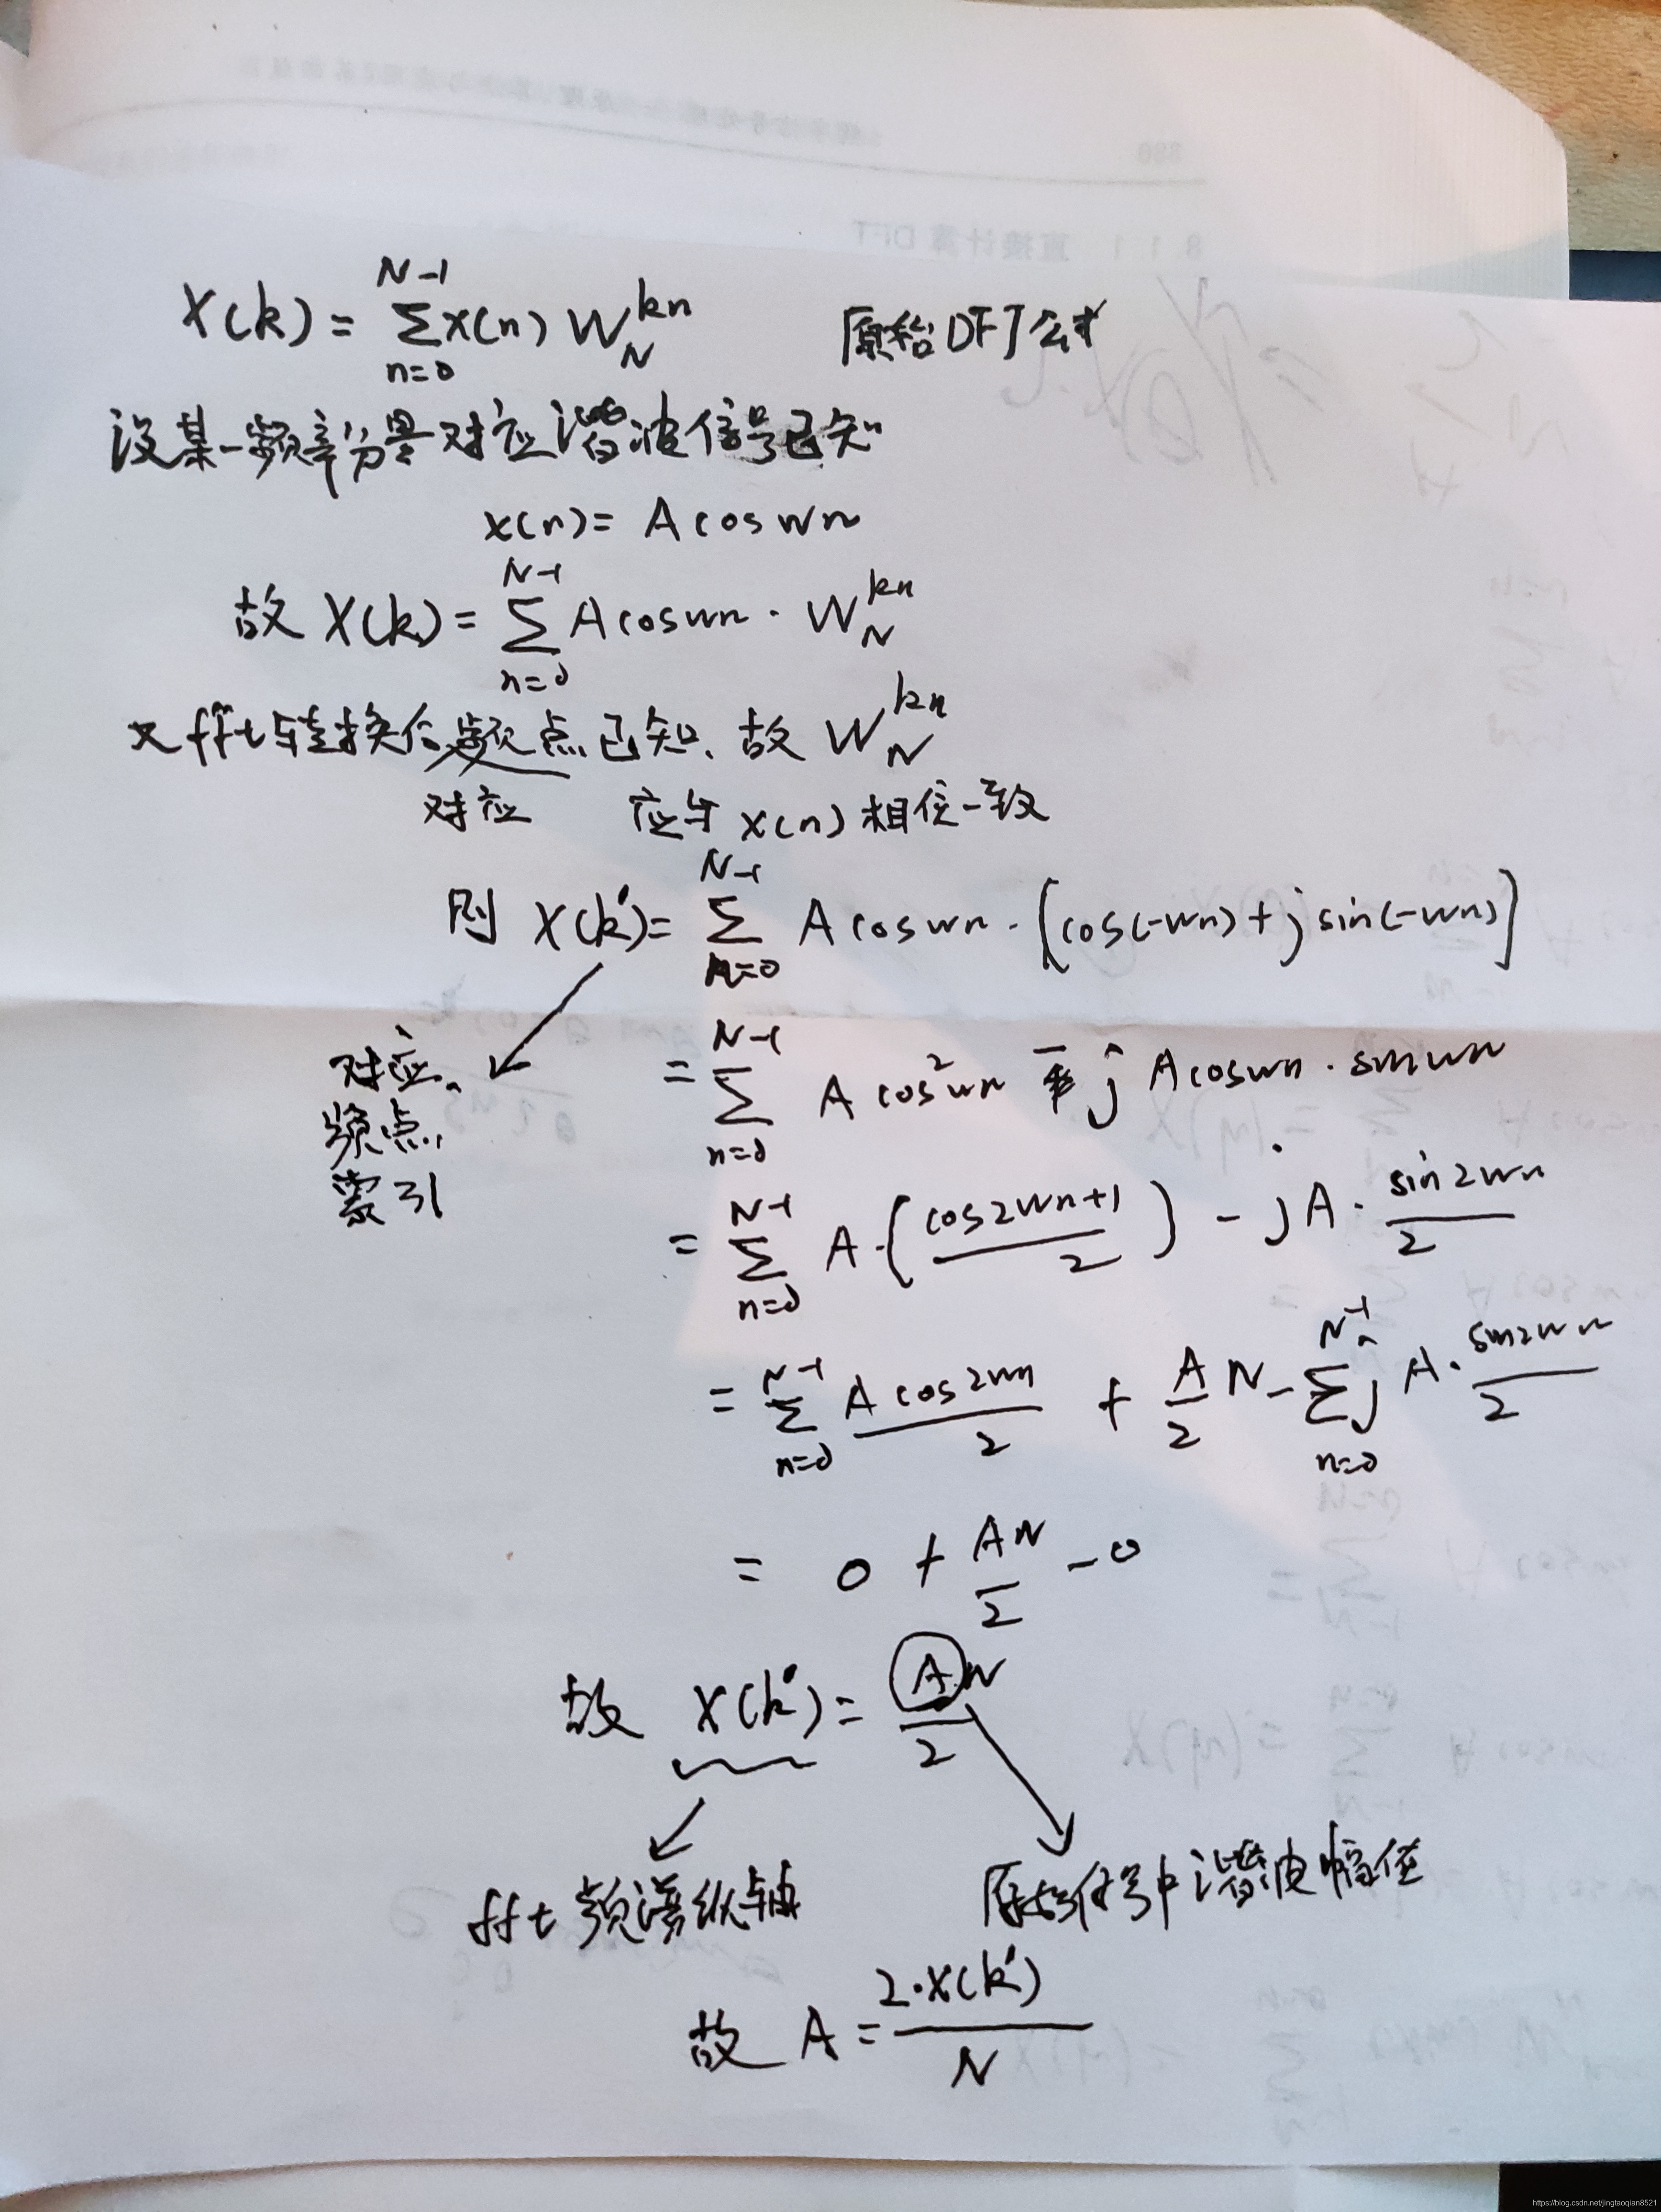 X(k) = \sum_{n=0}^{N-1} x(n) W_N^{kn} 原始DFT公式
设某一频率分量对应谐波信号已知
x(n) = A cos wn
故 X(k) = \sum_{n=0}^{N-1} A cos wn · W_N^{kn}
又fft转换后频点已知、故 W_N^{kn}
对应 应与 x(n) 相位一致
则 X(k') = \sum_{n=0}^{N-1} A cos wn · [cos(-wn) + j sin(-wn)]
对应
频点
索引
= \sum_{n=0}^{N-1} A cos^2 wn - j A cos wn · sin wn
= \sum_{n=0}^{N-1} A · (\frac{cos2wn+1}{2}) - j A · \frac{sin2wn}{2}
= \sum_{n=0}^{N-1} \frac{A cos2wn}{2} + \frac{A}{2} N - \sum_{n=0}^{N-1} j A · \frac{sin2wn}{2}
= 0 + \frac{AN}{2} - 0
故 X(k') = \frac{AN}{2}
fft频谱纵轴 原始信号中谐波幅值
故 A = \frac{2·X(k')}{N}
8.1.1 直接计算DFT
https://blog.csdn.net/jingtaoqian8521